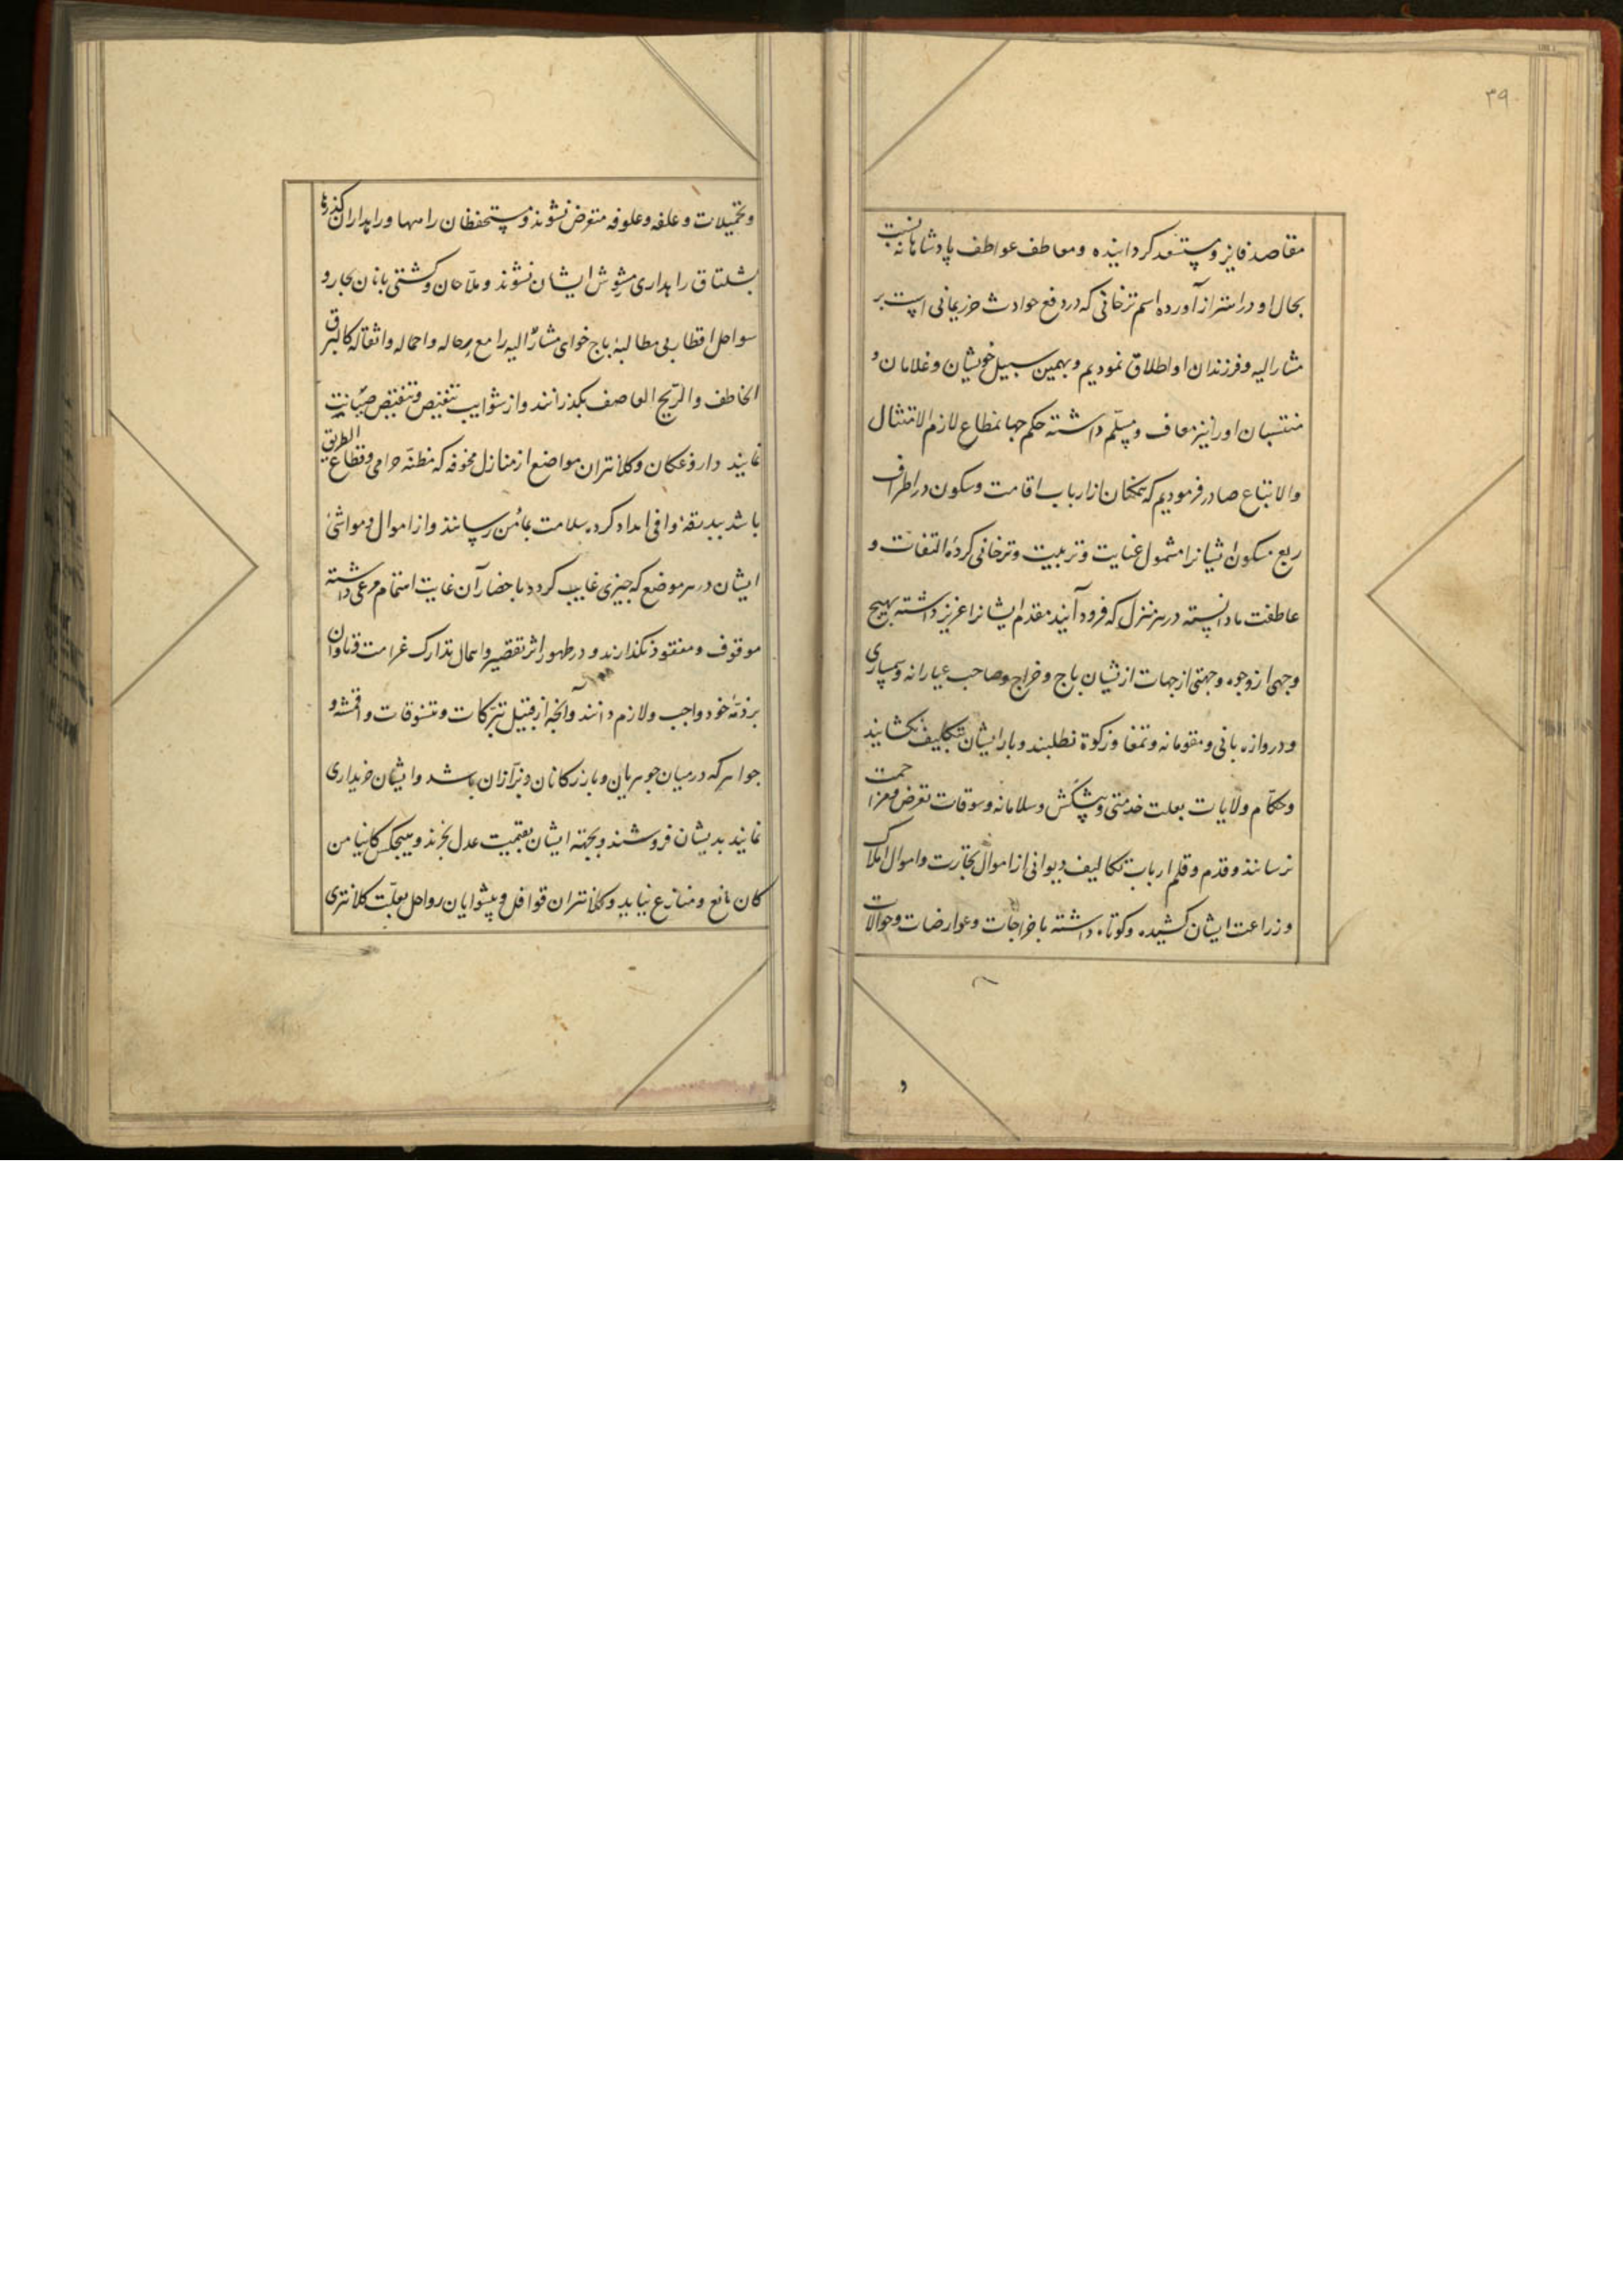 ۳۹
مقاصد فایز و مستسعد کردانیده و معاطف عواطف پادشاهانه نسبت
بحال او در اهتزاز آورده اسم ترخانی که در دفع حوادث حرز یمانی است بر
مشار الیه و فرزندان او اطلاق نمودیم و بهمین سبیل خویشان و غلامان و
منتسبان او را نیز معاف و مسلم داشته حکم جهانمطاع لازم الامتثال
والاتباع صادر فرمودیم که همکنان از ارباب اقامت و سکون در اطراف
ربع مسکون ایشانرا مشمول عنایت و تربیت و ترخانی کردهٔ التفات و
عاطفت ما دانسته در هر منزل که فرود آیند مقدم ایشانرا عزیز داشته بهیچ
وجهی از وجوه و جهتی از جهات از یشان باج و خراج و صاحب عیارانه و سمساری
و دروازه بانی و مقومانه و تمغا و زکوة نطلبند و بار ایشان بتکلیف نکشایند
و حکام ولایات بعلت خدمتی و پیشکش و سلامانه و سوقات تعرض و مزاحمت
نرسانند و قدم و قلم ارباب تکالیف دیوانی از اموال تجارت و اموال املاک
و زراعت ایشان کشیده و کوتاه داشته باخراجات و عوارضات و حوالات
و تحمیلات و علفه و علوفه متعرض نشوند و مستحفظان راهها و راهداران کذرها
بشلتاق راهداری مشوش ایشان نشوند و ملاحان و کشتی بانان بحار و
سواحل اقطار بی مطالبهٔ باج خوای مشار الیه را مع رحاله و احماله و اثقاله کالبرق
الخاطف والریح العاصف بکذرانند و از شوایب تنغیص و تنقیص صیانت
نمایند داروغکان و کلانتران مواضع از منازل مخوفه که مظنّه حرامی و قطاع الطریق
باشد ببدرقهٔ وافی امداد کرده بسلامت بمأمن رسانند و از اموال و مواشی
ایشان در هر موضع که چیزی غایب کردد باحضار آن غایت اهتمام مرعی داشته
موقوف و مفقود نکذارند و در ظهور اثر تقصیر و اهمال تدارک غرامت و تاوان
بر ذمّهٔ خود واجب و لازم دانند و آنچه از قبیل تبرکات و تنسوقات و اقمشه و
جواهر که در میان جوهریان و بازرکانان و بزازان باشد و ایشان خریداری
نمایند بدیشان فروشند و بجهته ایشان بقیمت عدل بخرند و هیچکس کائنا من
کان مانع و منازع نیاید و کلانتران قوافل و پیشوایان رواحل بعلّت کلانتری